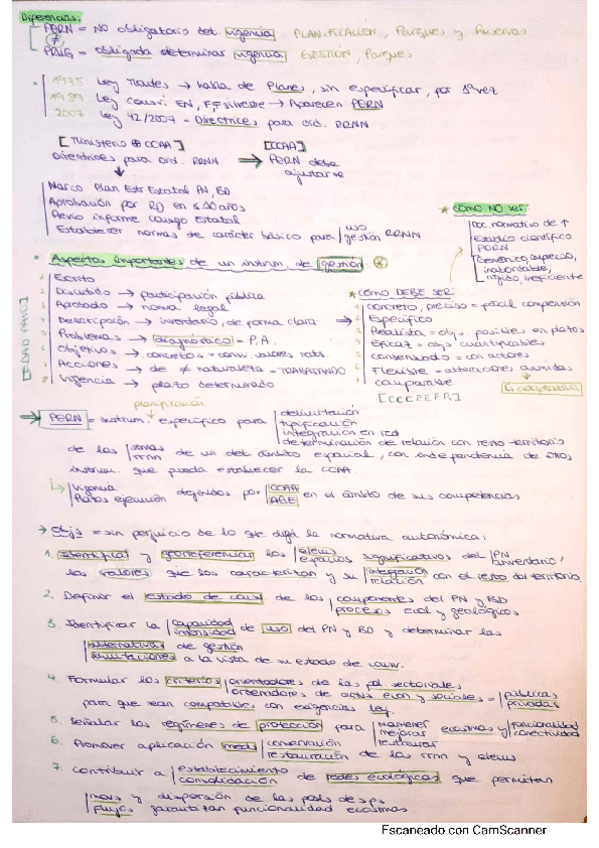 Diferencias:
PORN = NO obligatorio det. vigencia PLANIFICACIÓN, Parques y Reservas
≠
PRUG = obligada determinar vigencia GESTIÓN, Parques
1975 Ley → habla de Planes, sin especificar, por 1ª vez
1989 Ley conserv. EN, F,F silvestre → Aparecen PORN
2007 Ley 42/2007 - Directrices para ord. RRNN
[Ministerio ⊕ CCAA] [CCAA]
Directrices para ord. RRNN ⇒ PORN debe
ajustarse
Marco Plan Estr Estatal PN, BD
Aprobación por RD en ≤10 años
Previo informe consejo Estatal
Establecer normas de carácter básico para uso
gestión RRNN
* CÓMO NO SER:
Doc. normativo de ↑
Estudio científico
PORN
Genérico, superfluo,
inabordable,
rígido, ineficiente
• Aspectos importantes de un instrum. de gestión:
1 Escrito
2 Discutido → participación pública
3 Aprobado → norma legal
4 Descripción → inventario, de forma clara
5 Problemas → diagnóstico = P.A.
6 Objetivos → concretos = conserv. valores nats.
7 Acciones → de ≠ naturaleza =
8 Vigencia → plazo determinado
* CÓMO DEBE SER:
1 Concreto, preciso = fácil comprensión
2 Específico
3 Realista = objs. posibles en plazos
4 Eficaz = objs cuantificables
5 consensuado = con actores
6 Flexible = alteraciones asumidas
7 comparable
G. adaptativa
[CCCEEFR]
planificación
→ PORN = instrum. específico para delimitación
tipificación
integración en red
determinación de relación con resto territorio
de los sistemas
rrnn de un det. ámbito espacial, con independencia de otros
instrum. que pueda establecer la CCAA.
↳ Vigencia
Plazos ejecución definidos por CCAA
AGE en el ámbito de sus competencias
→ Objs = sin perjuicio de lo que diga la normativa autonómica:
1. Identificar y georeferenciar los elems
espacios significativos del PN
inventario,
los valores que los caracterizan y su integración
relación con el resto del territorio.
2. Definir el estado de cons. de los componentes del PN y BD
procesos ecol y geológicos
3. Identificar la capacidad
intensidad de uso del PN y BD y determinar las
alternativas de gestión
limitaciones a la vista de su estado de cons.
4. Formular los criterios orientadores de las pol. sectoriales,
ordenadores de activs econ y sociales = públicas
privadas
para que sean compatibles con exigencias ley.
5. Señalar los regímenes de protección para mantener
mejorar
restaurar ecosistemas y funcionalidad
conectividad
6. Promover aplicación meds conservación
restauración de los rrnn y elems
7. Contribuir a establecimiento
consolidación de redes ecológicas que permitan
movs y dispersión de las pobls de sps,
flujos garantizan funcionalidad ecosistemas.
Escaneado con CamScanner